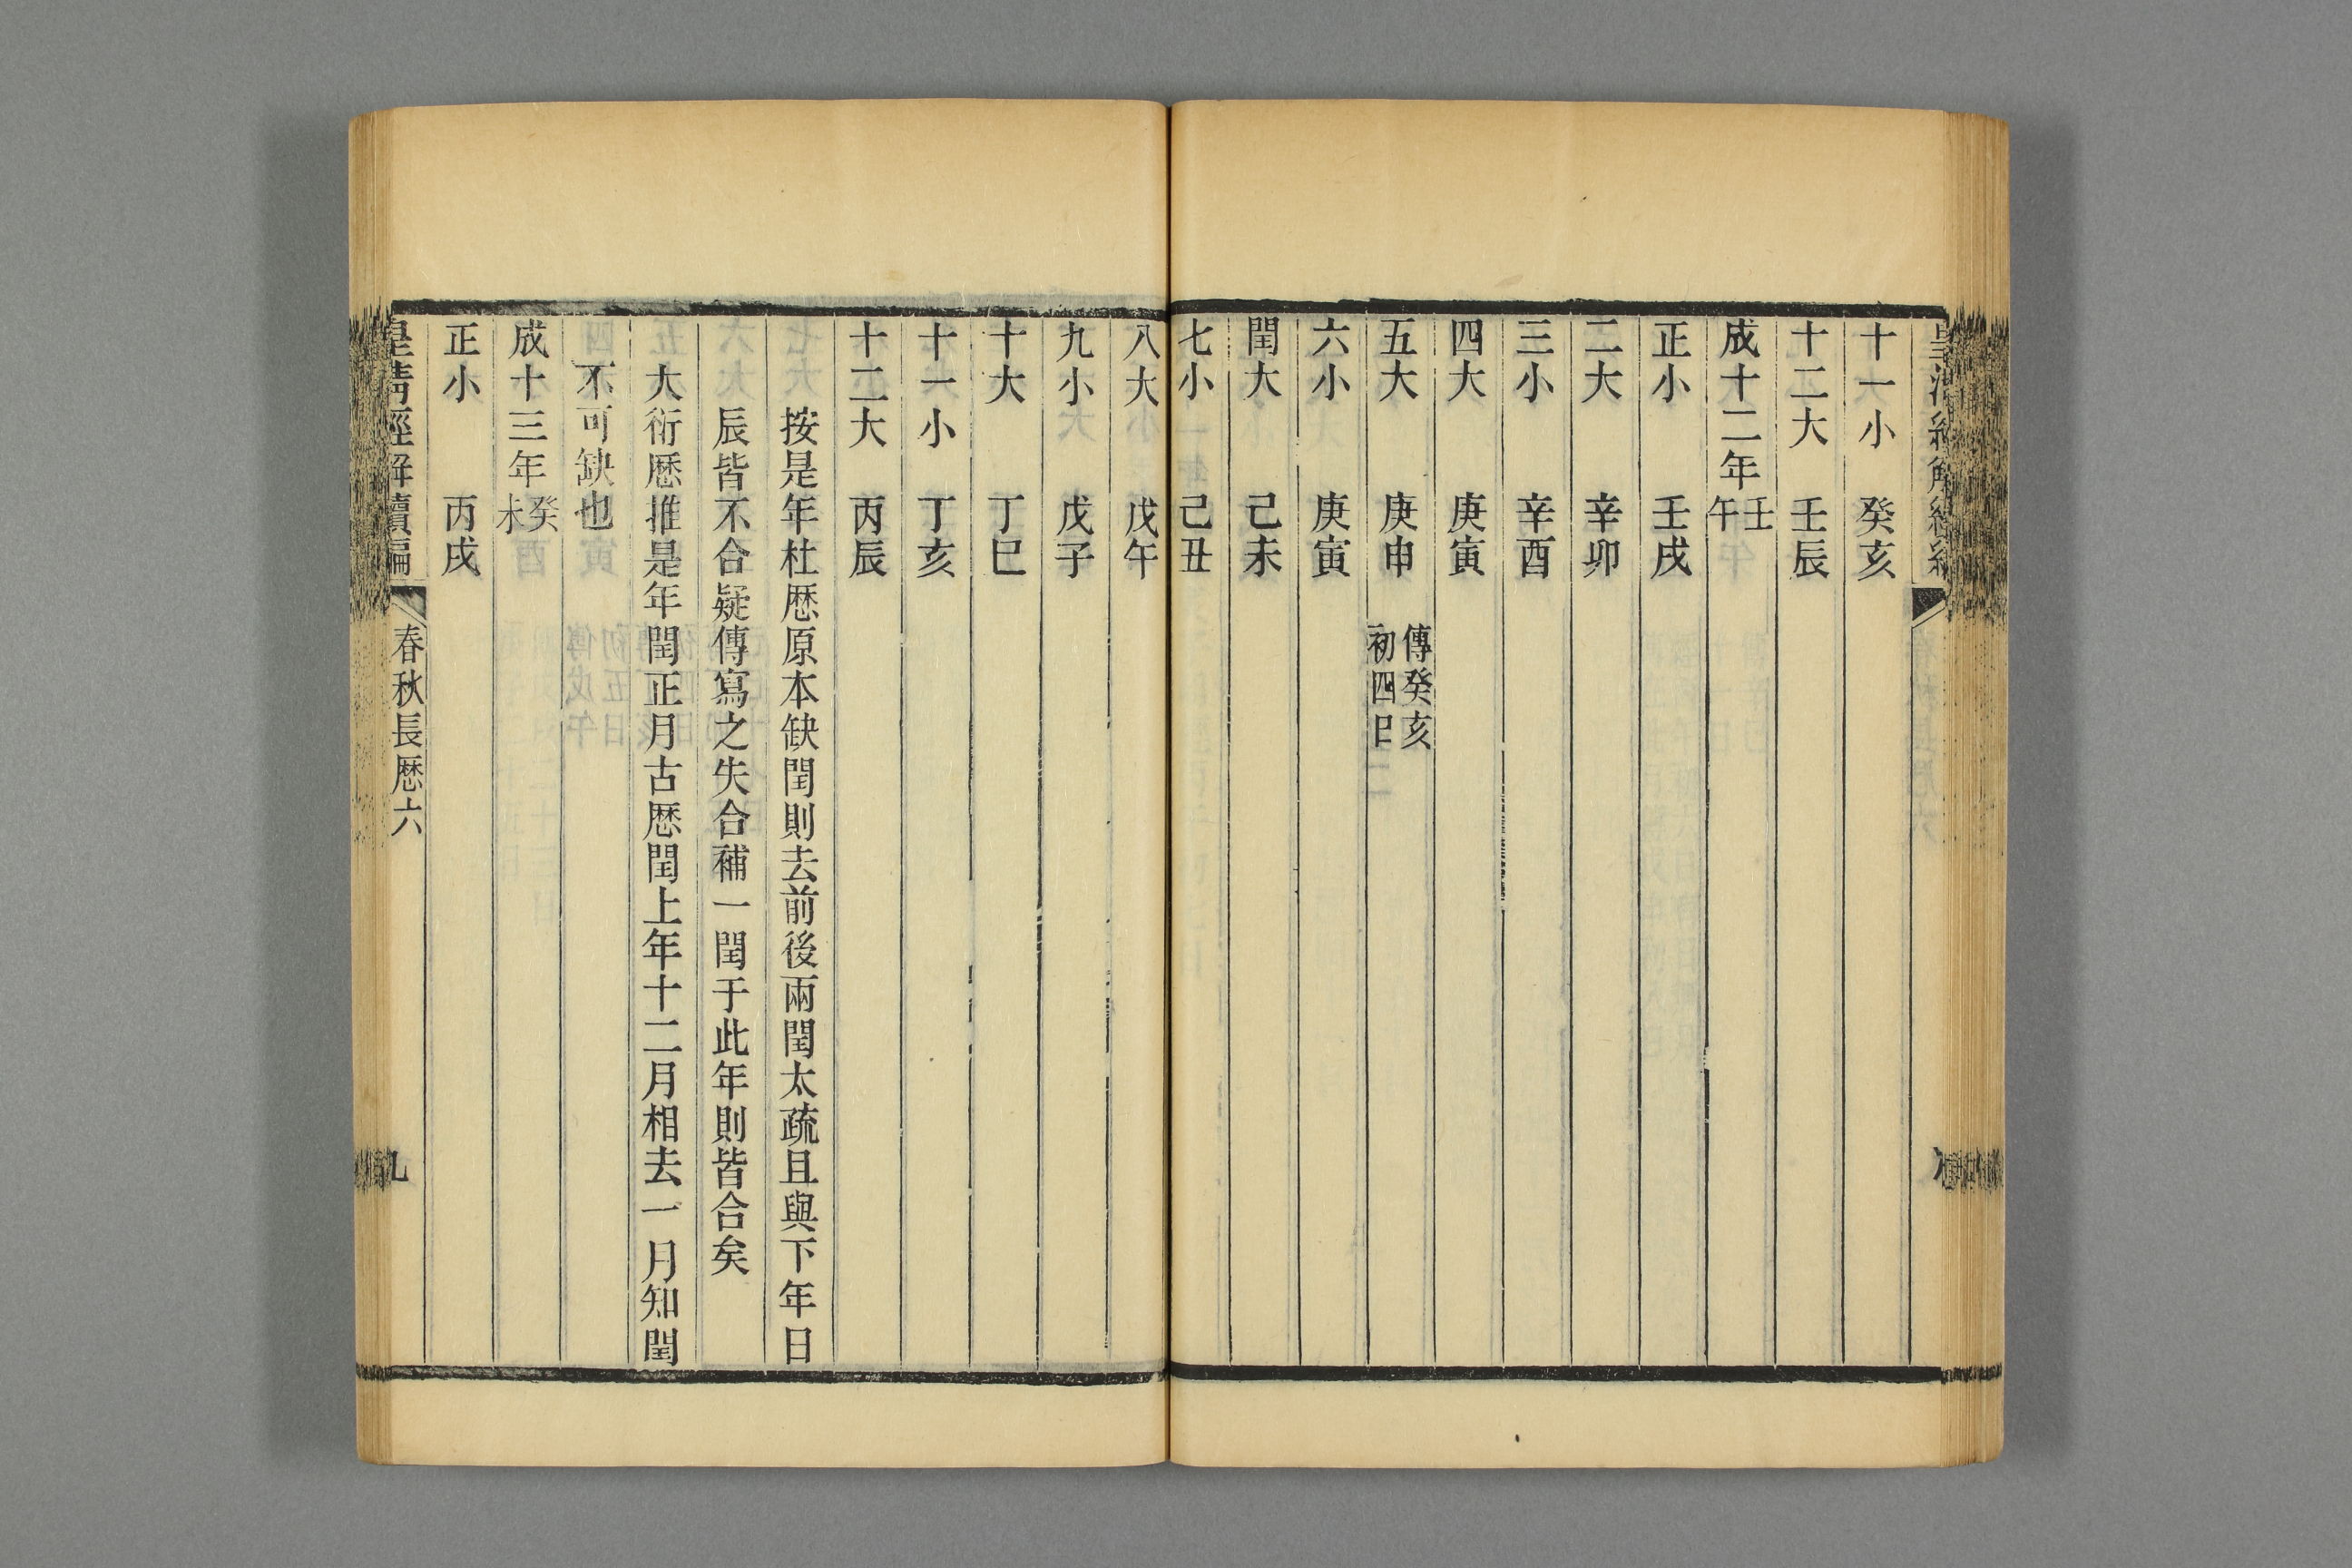 十一小　癸亥
十二大　壬辰
成十二年壬午
正小　壬戌
二大　辛卯
三小　辛酉
四大　庚寅
五大　庚申　傳癸亥初四日
六小　庚寅
閏大　己未
七小　己丑
八大　戊午
九小　戊子
十大　丁巳
十一小　丁亥
十二大　丙辰
按是年杜厯原本缺閏則去前後兩閏太疏且與下年日
辰皆不合疑傳寫之失合補一閏于此年則皆合矣
大衍厯推是年閏正月古厯閏上年十二月相去一月知閏
不可缺也
成十三年癸未
正小　丙戌
皇清經解續編　春秋長厯六　九